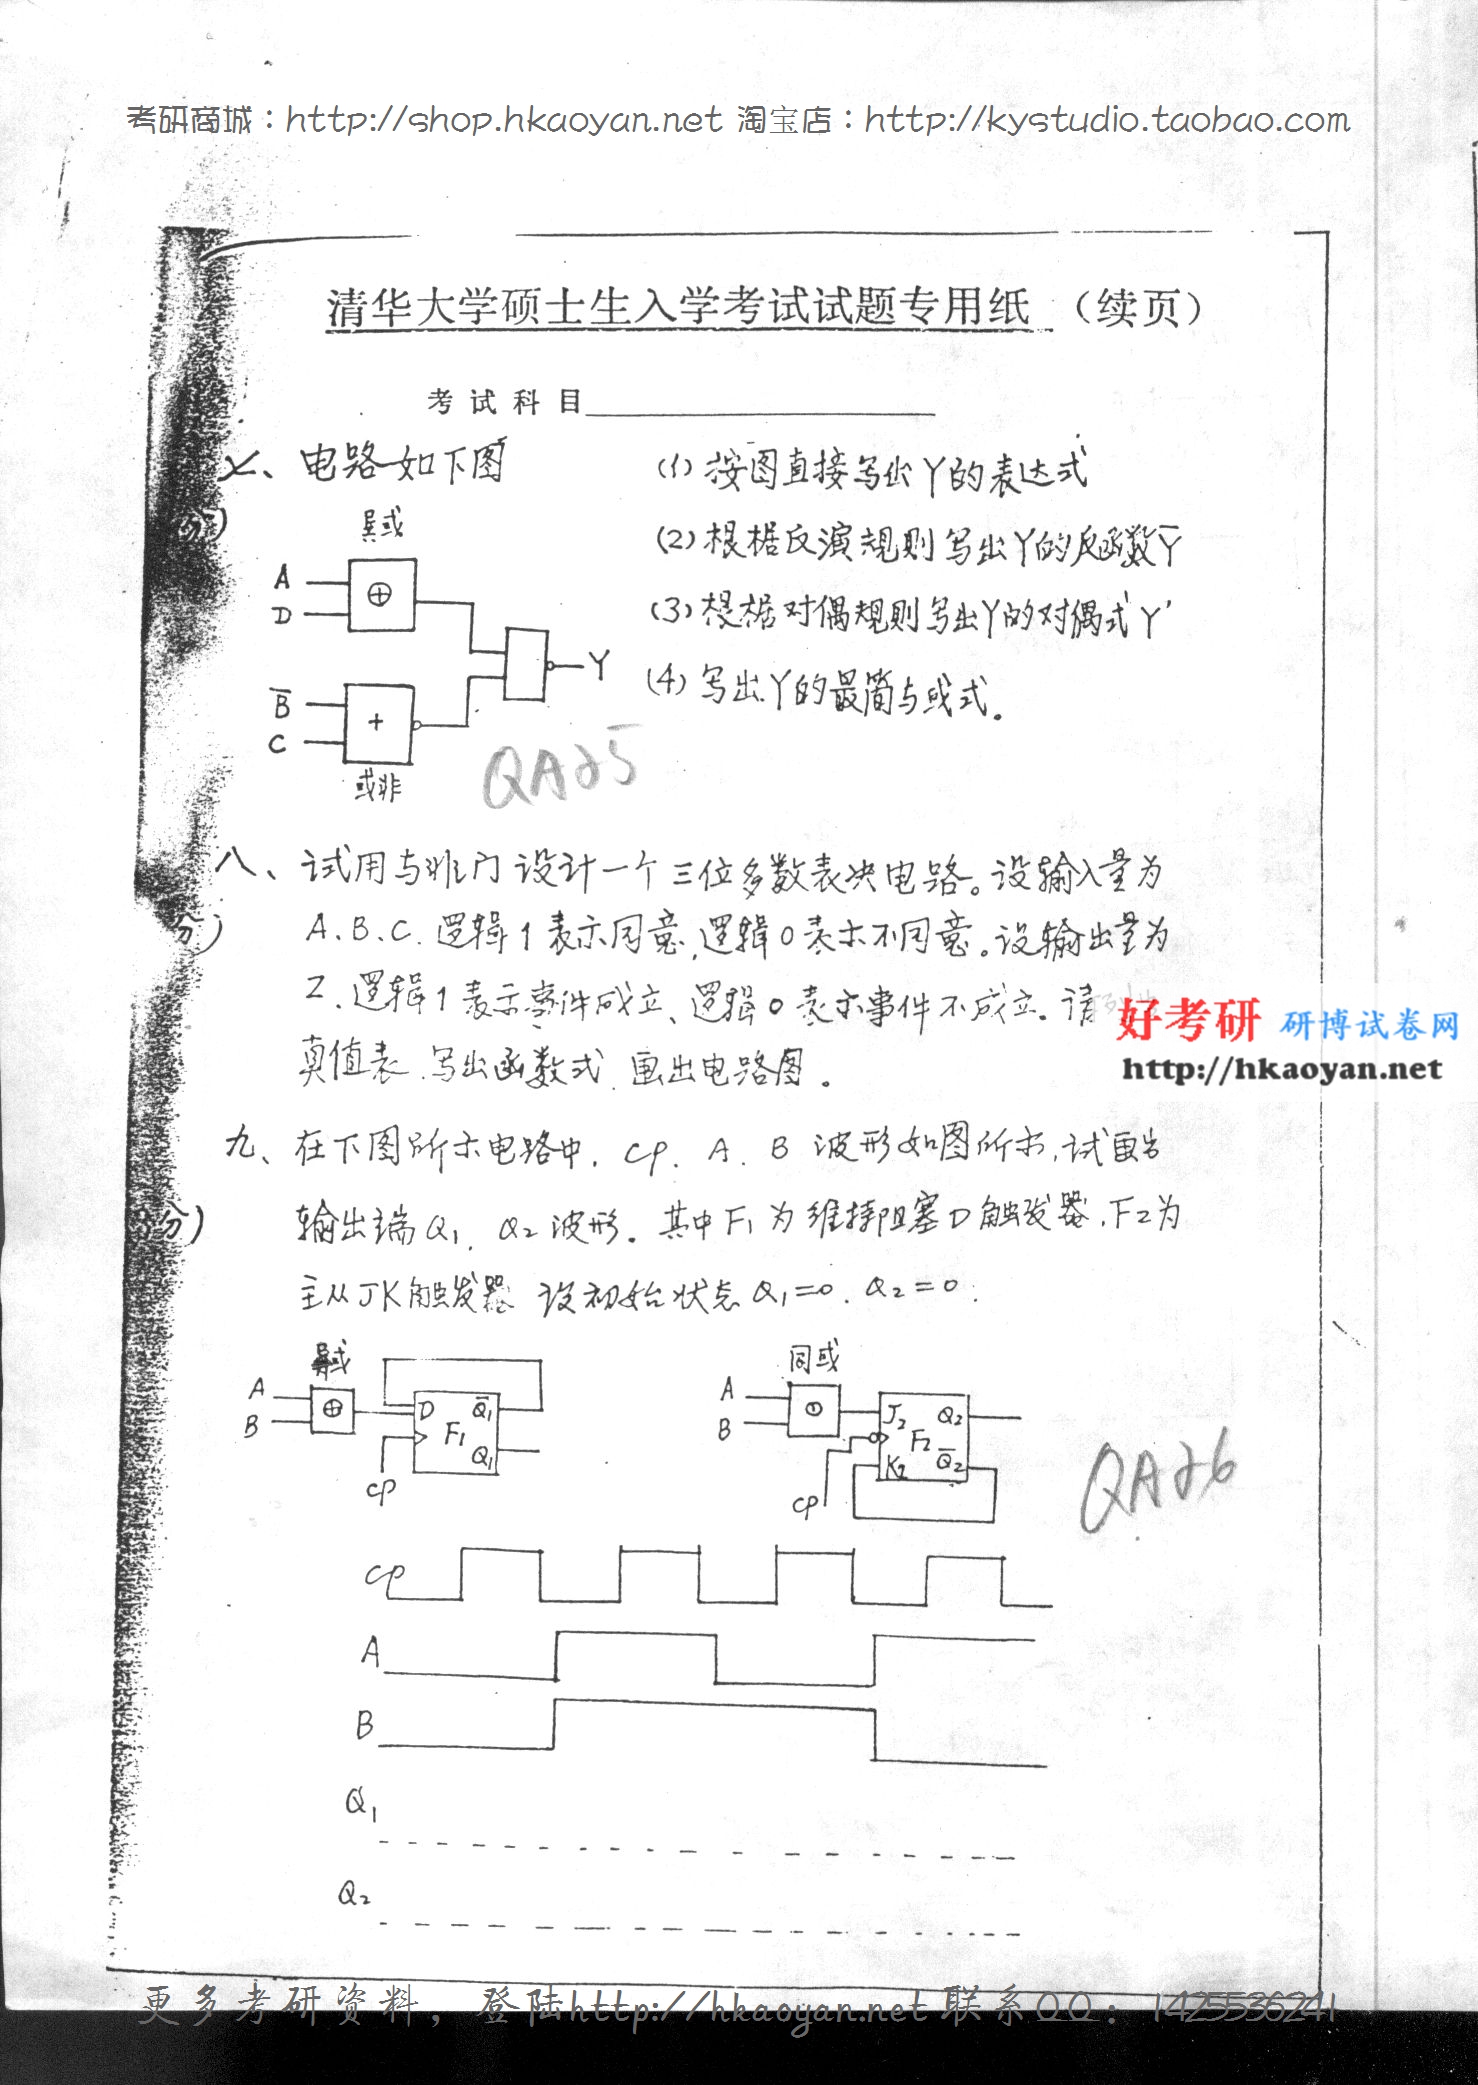 考研商城：http://shop.hkaoyan.net 淘宝店：http://kystudio.taobao.com
清华大学硕士生入学考试试题专用纸 （续页）
考试科目
七、电路如下图
分)
异或
A
D
⊕
B̅
C
+
或非
Y
(1) 按图直接写出Y的表达式
(2) 根据反演规则写出Y的反函数Y̅
(3) 根据对偶规则写出Y的对偶式Y'
(4) 写出Y的最简与或式。
QA25
八、试用与非门设计一个三位多数表决电路。设输入量为
分)
A、B、C. 逻辑1表示同意,逻辑0表示不同意。设输出量为
Z、逻辑1表示事件成立、逻辑0表示事件不成立。请
真值表、写出函数式、画出电路图。
好考研 研博试卷网
http://hkaoyan.net
九、在下图所示电路中, CP、A、B 波形如图所示,试画出
分)
输出端Q₁、Q₂波形. 其中F₁为维持阻塞D触发器,F₂为
主从JK触发器 设初始状态Q₁=0. Q₂=0.
异或
A
B
⊕
D
F₁
Q̅₁
Q₁
CP
同或
A
B
⊙
J₂
F₂
K₂
Q₂
Q̅₂
CP
QA26
CP
A
B
Q₁
Q₂
更多考研资料，登陆http://hkaoyan.net 联系QQ：1425536241